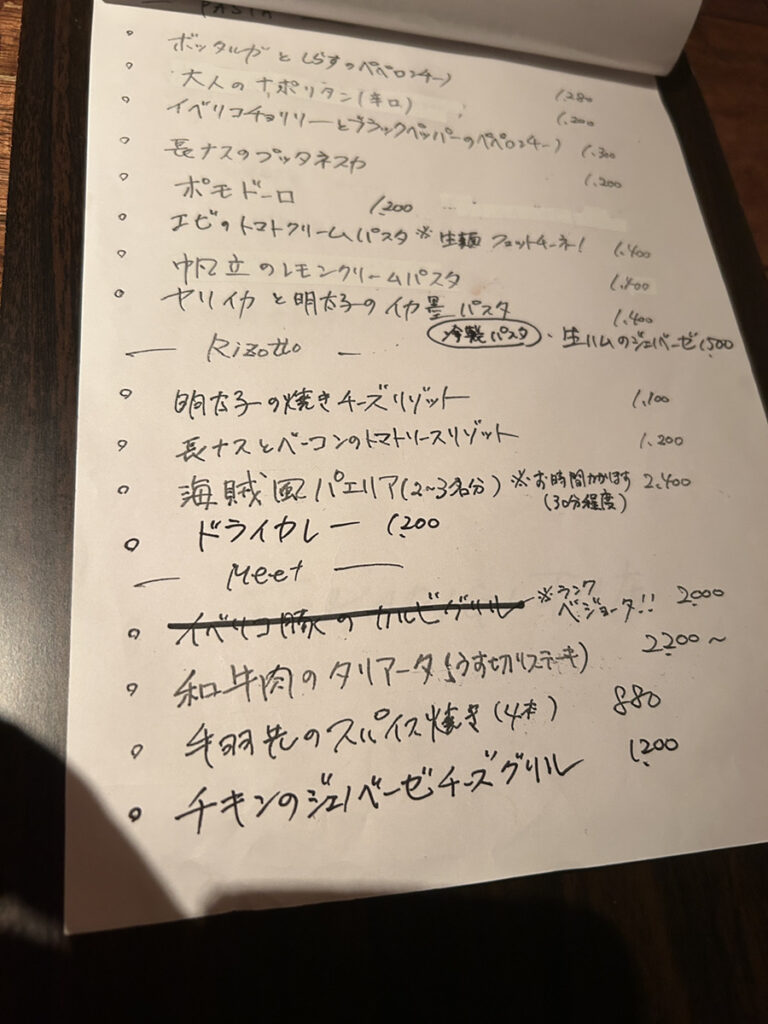 — PASTA —
ボッタルガとしらすのペペロンチーノ 1,280
大人のナポリタン(辛口) 1,200
イベリコチョリソーとブラックペッパーのペペロンチーノ 1,300
長ナスのプッタネスカ 1,200
ポモドーロ 1,200
エビのトマトクリームパスタ ※生麺 フェットチーネ! 1,400
帆立のレモンクリームパスタ 1,400
ヤリイカと明太子のイカ墨パスタ 1,400
— Rizotto — 冷製パスタ・生ハムのジェノベーゼ 1,500
明太子の焼きチーズリゾット 1,100
長ナスとベーコンのトマトソースリゾット 1,200
海賊風パエリア(2~3名分) ※お時間かかります 2,400
(30分程度)
ドライカレー 1,200
— Meet —
イベリコ豚のカルビグリル ※ランク
ベジョータ!! 2,000
和牛肉のタリアータ(うす切りステーキ) 2,200~
手羽先のスパイス焼き(4本) 880
チキンのジェノベーゼチーズグリル 1,200